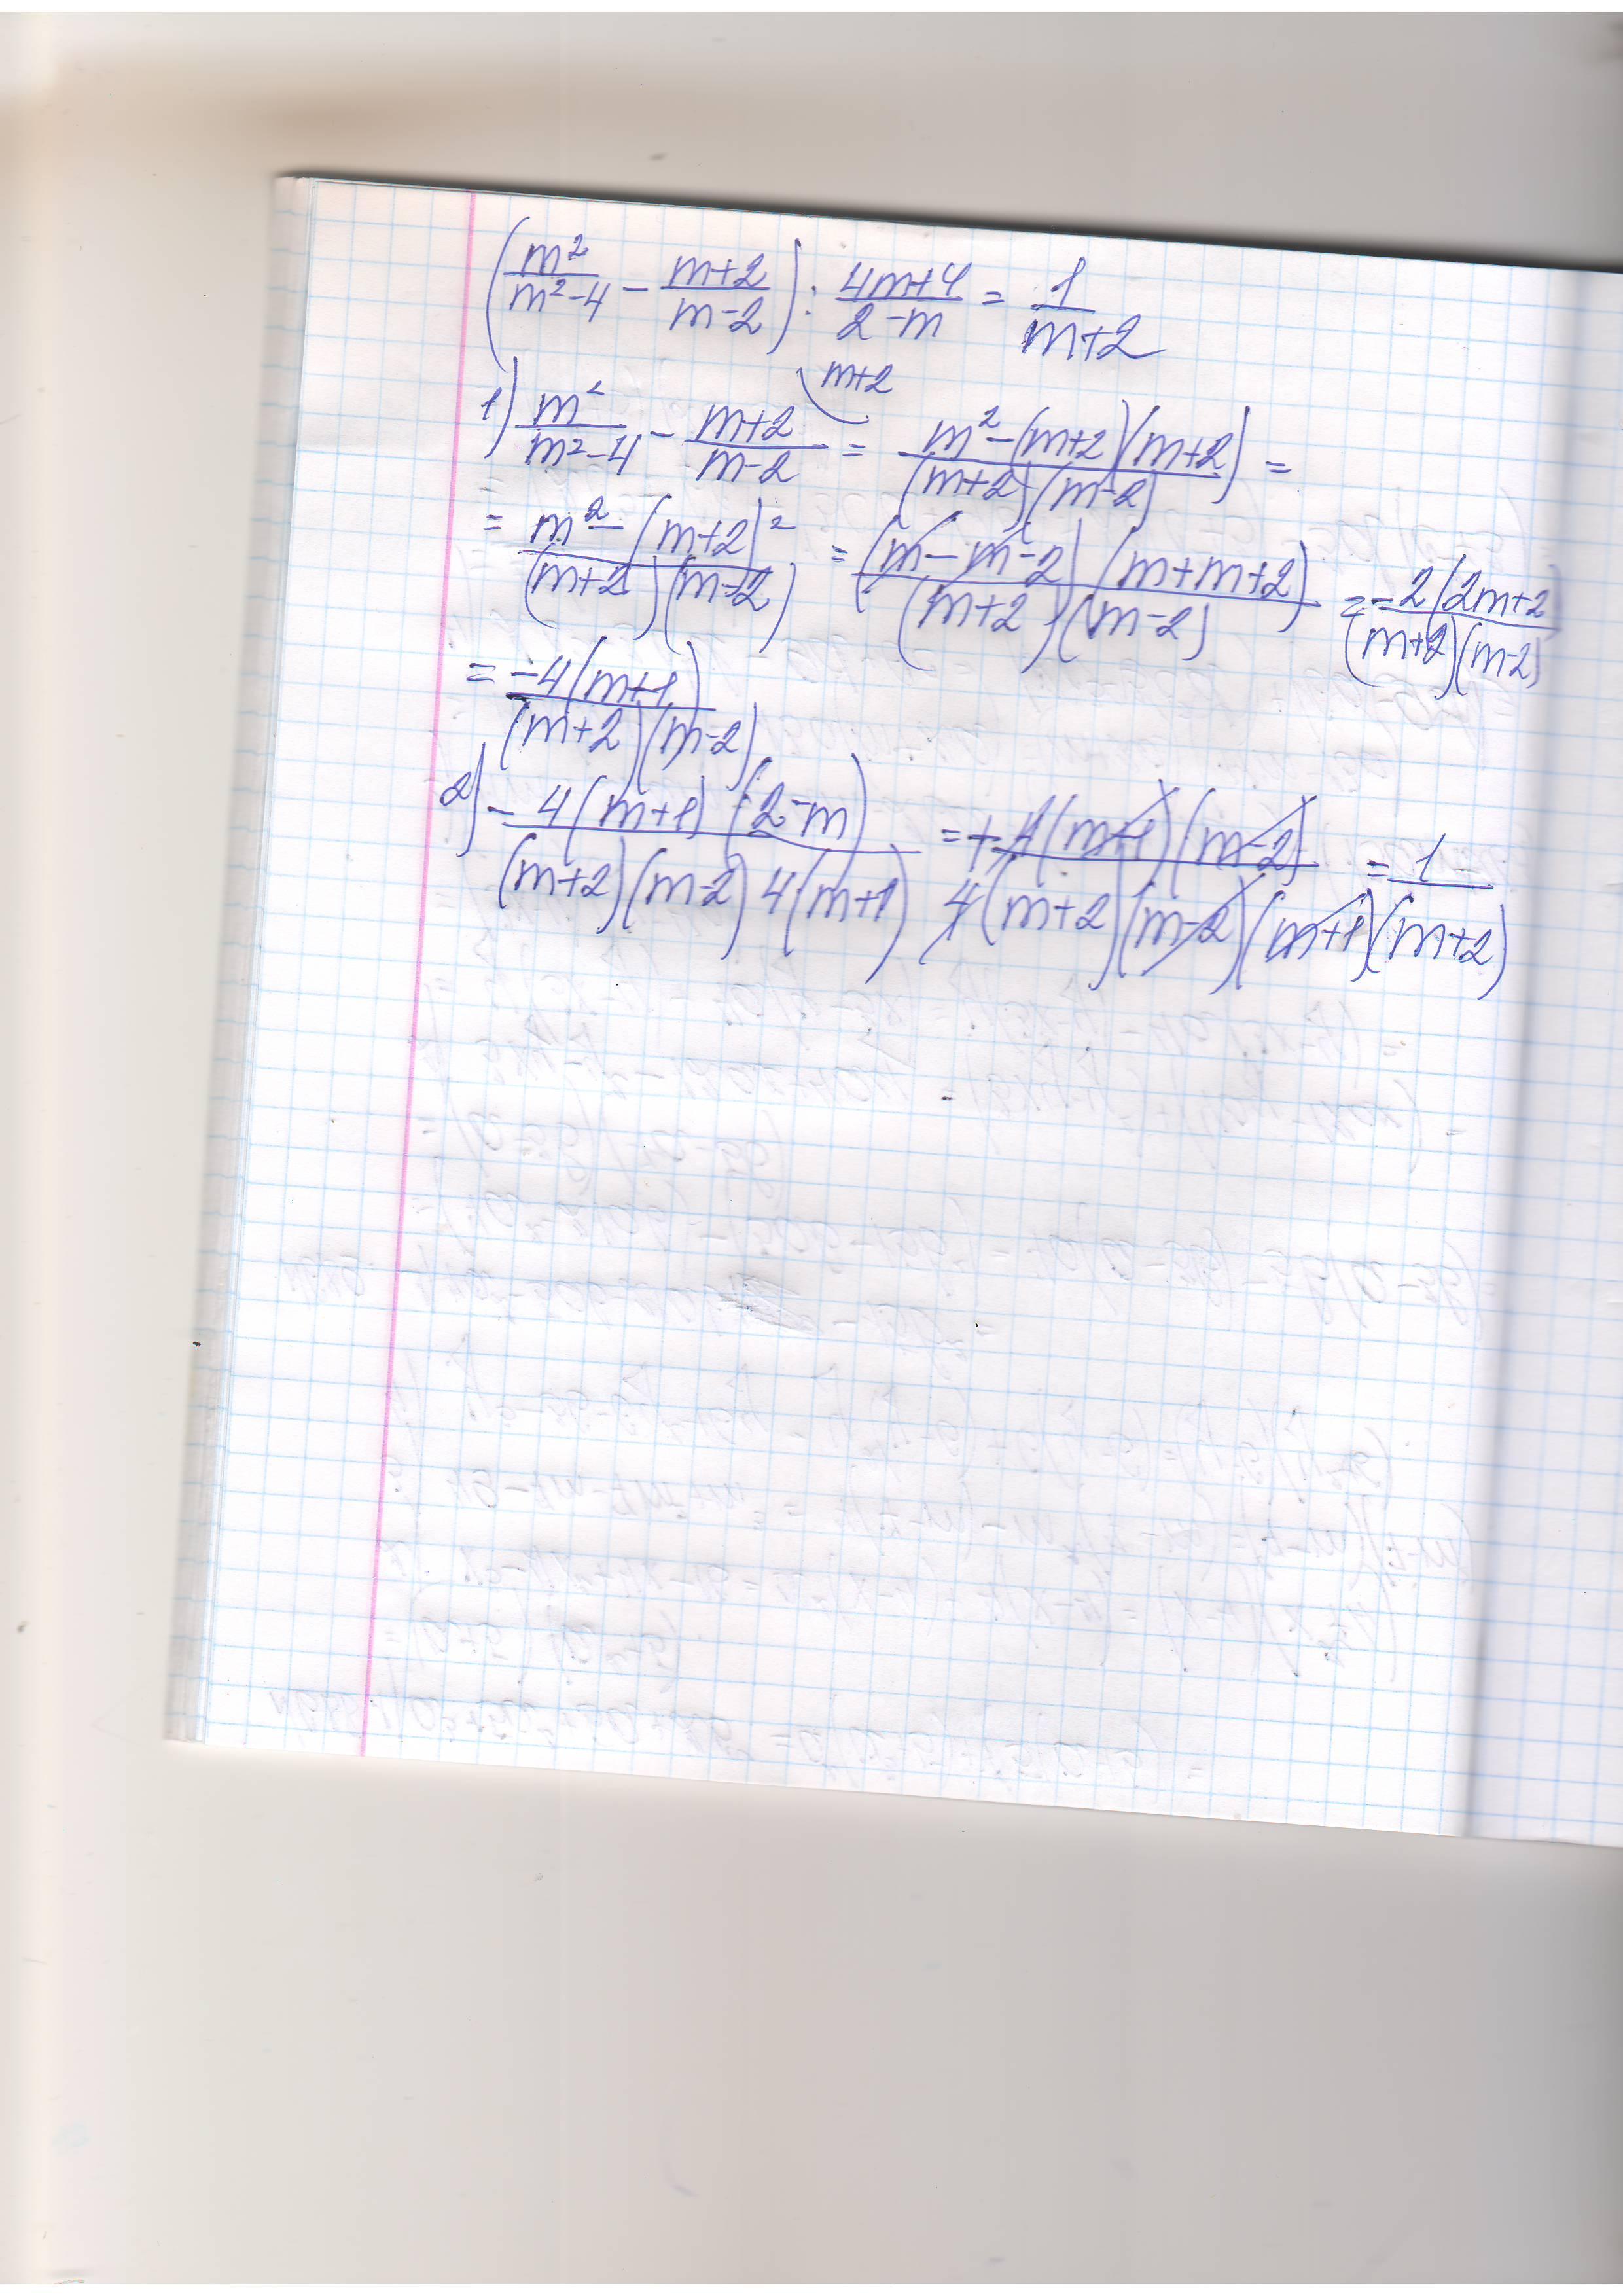 (m²/(m²-4) - (m+2)/(m-2)) : (4m+4)/(2-m) = 1/(m+2)
m+2
1) m²/(m²-4) - (m+2)/(m-2) = (m²-(m+2)(m+2))/((m+2)(m-2)) =
= (m²-(m+2)²)/((m+2)(m-2)) = ((m-m-2)(m+m+2))/((m+2)(m-2)) = -2(2m+2)/((m+2)(m-2))
= -4(m+1)/((m+2)(m-2))
2) -4(m+1)(2-m)/((m+2)(m-2)4(m+1)) = +4(m+1)(m-2)/(4(m+2)(m-2)(m+1)) = 1/(m+2)